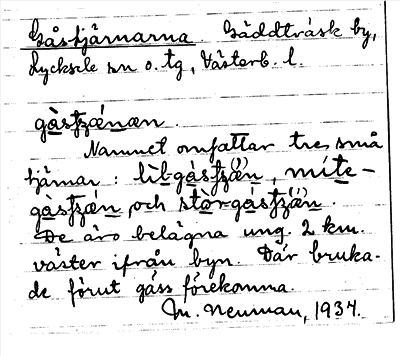 Gåstjärnarna. Gäddträsk by,
Lycksele sn o. tg, Västerb. l.
gàsʈʂǽnæn.
Namnet omfattar tre små
tjärnar: lìl-gásʈʂǽ(ˈ)n, míte-
gàsʈʂǽn och stòr-gásʈʂǽ(ˈ)n.
De äro belägna ung. 2 km.
väster ifrån byn. Där bruka-
de förut gäss förekomma.
M. Neuman, 1937.